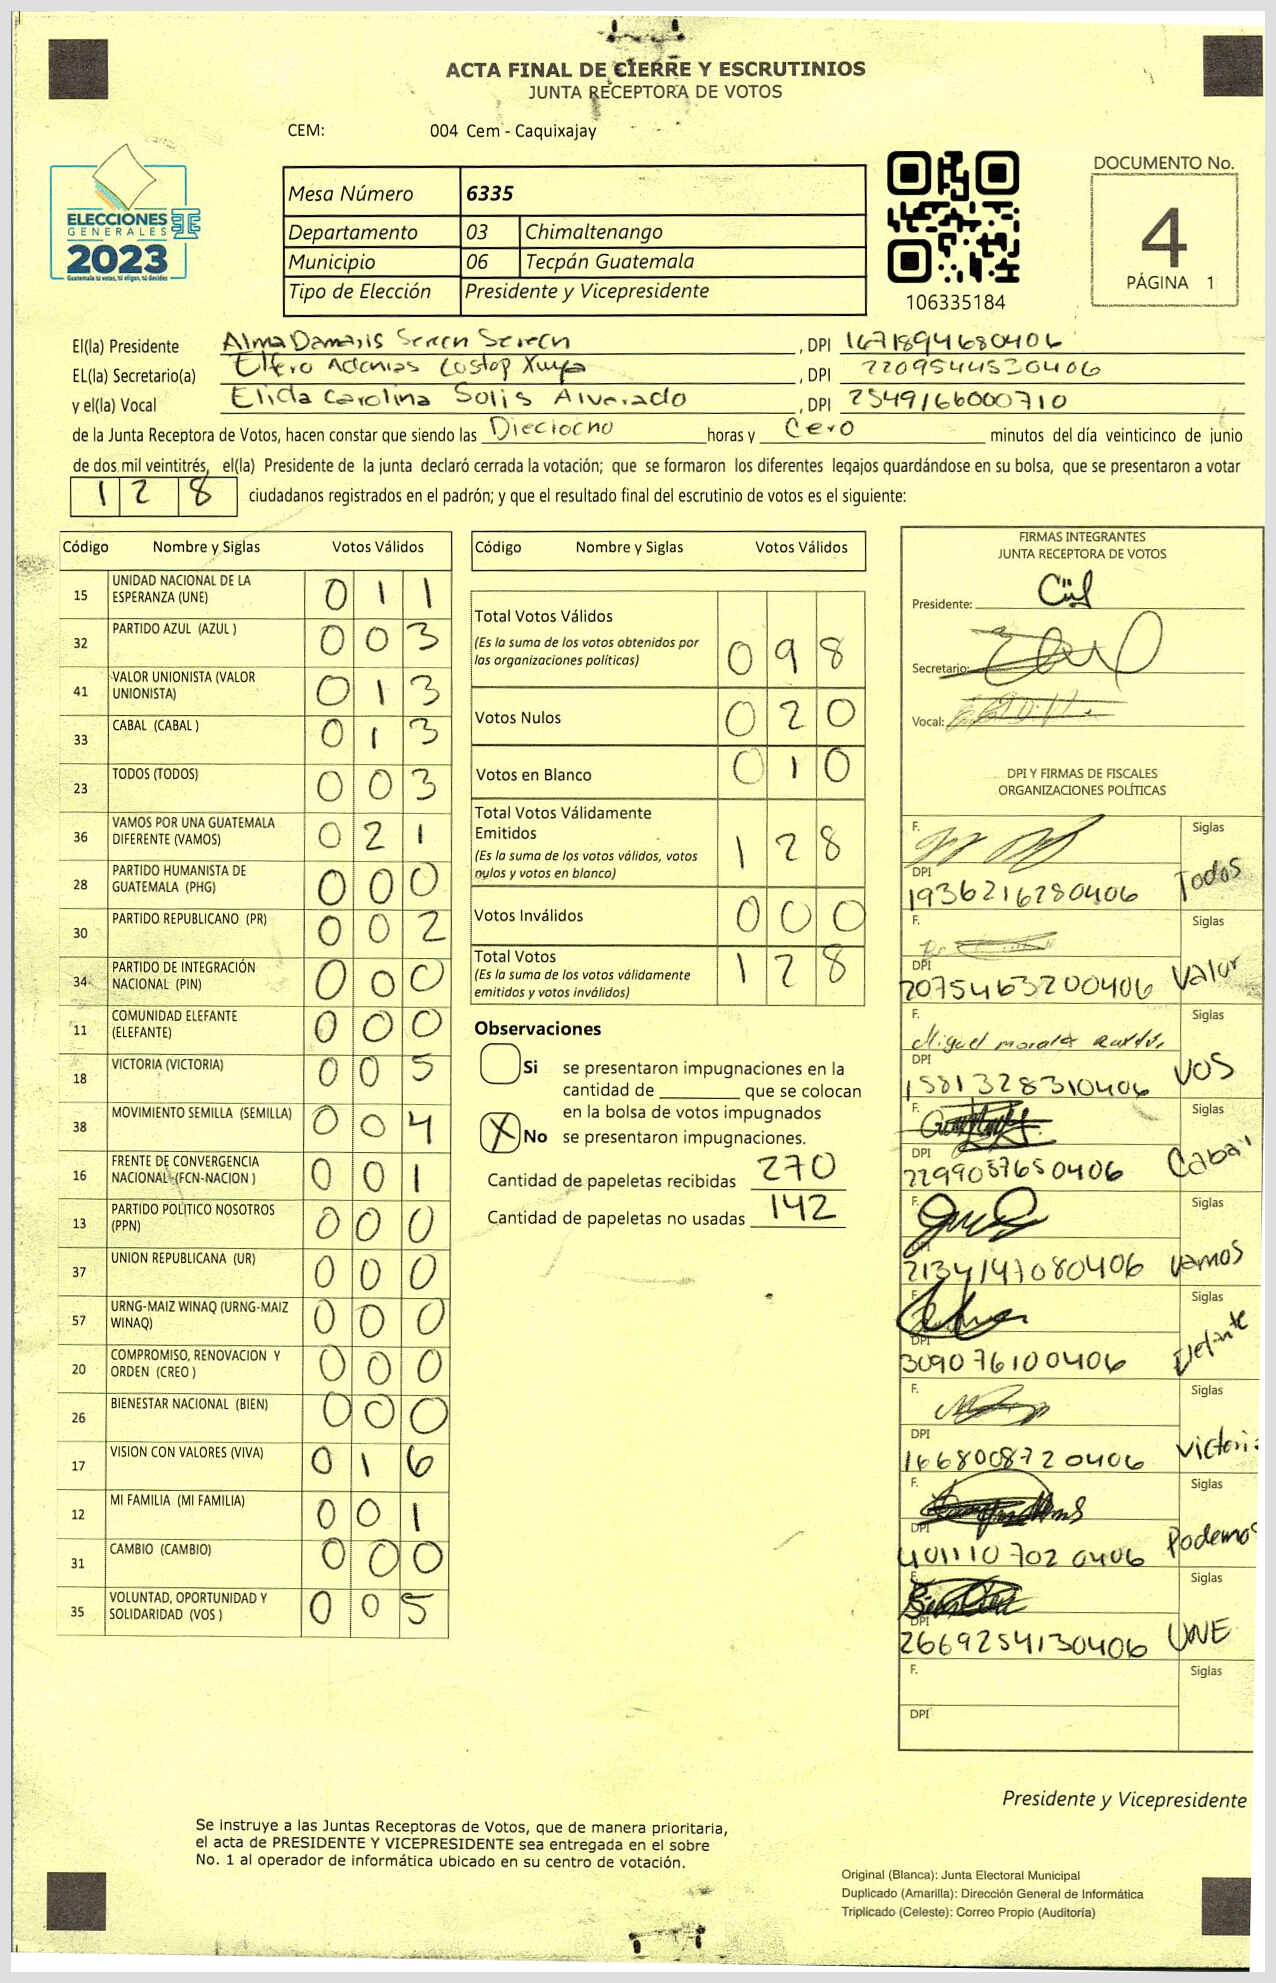 ACTA FINAL DE CIERRE Y ESCRUTINIOS
JUNTA RECEPTORA DE VOTOS
CEM: 004 Cem - Caquixajay
ELECCIONES
GENERALES
2023
Guatemala tú votas, tú eliges, tú decides
Mesa Número 6335
Departamento 03 Chimaltenango
Municipio 06 Tecpán Guatemala
Tipo de Elección Presidente y Vicepresidente
106335184
DOCUMENTO No.
4
PÁGINA 1
El(la) Presidente Alma Damaris Seren Seren, DPI 1671894680406
EL(la) Secretario(a) Adonias Xuya, DPI 2209544530406
y el(la) Vocal Elida Carolina Solis Alvarado, DPI 2549166000710
de la Junta Receptora de Votos, hacen constar que siendo las Dieciocho horas y Cero minutos del día veinticinco de junio
de dos mil veintitrés, el(la) Presidente de la junta declaró cerrada la votación; que se formaron los diferentes legajos guardándose en su bolsa, que se presentaron a votar
128 ciudadanos registrados en el padrón; y que el resultado final del escrutinio de votos es el siguiente:
Código Nombre y Siglas Votos Válidos
15 UNIDAD NACIONAL DE LA ESPERANZA (UNE) 011
32 PARTIDO AZUL (AZUL ) 003
41 VALOR UNIONISTA (VALOR UNIONISTA) 013
33 CABAL (CABAL ) 013
23 TODOS (TODOS) 003
36 VAMOS POR UNA GUATEMALA DIFERENTE (VAMOS) 021
28 PARTIDO HUMANISTA DE GUATEMALA (PHG) 000
30 PARTIDO REPUBLICANO (PR) 002
34 PARTIDO DE INTEGRACIÓN NACIONAL (PIN) 000
11 COMUNIDAD ELEFANTE (ELEFANTE) 000
18 VICTORIA (VICTORIA) 005
38 MOVIMIENTO SEMILLA (SEMILLA) 004
16 FRENTE DE CONVERGENCIA NACIONAL (FCN-NACION ) 001
13 PARTIDO POLITICO NOSOTROS (PPN) 000
37 UNION REPUBLICANA (UR) 000
57 URNG-MAIZ WINAQ (URNG-MAIZ WINAQ) 000
20 COMPROMISO, RENOVACION Y ORDEN (CREO ) 000
26 BIENESTAR NACIONAL (BIEN) 000
17 VISION CON VALORES (VIVA) 016
12 MI FAMILIA (MI FAMILIA) 001
31 CAMBIO (CAMBIO) 000
35 VOLUNTAD, OPORTUNIDAD Y SOLIDARIDAD (VOS ) 005
Código Nombre y Siglas Votos Válidos
Total Votos Válidos 098
(Es la suma de los votos obtenidos por
las organizaciones políticas)
Votos Nulos 020
Votos en Blanco 010
Total Votos Válidamente
Emitidos 128
(Es la suma de los votos válidos, votos
nulos y votos en blanco)
Votos Inválidos 000
Total Votos 128
(Es la suma de los votos válidamente
emitidos y votos inválidos)
Observaciones
Si se presentaron impugnaciones en la
cantidad de ________ que se colocan
en la bolsa de votos impugnados
X No se presentaron impugnaciones.
Cantidad de papeletas recibidas 270
Cantidad de papeletas no usadas 142
FIRMAS INTEGRANTES
JUNTA RECEPTORA DE VOTOS
Presidente:
Secretario:
Vocal:
DPI Y FIRMAS DE FISCALES
ORGANIZACIONES POLÍTICAS
F. Siglas
DPI 1936216280406 Todos
F. Siglas
DPI 2075463200406 Valor
F. Miguel Siglas
DPI 1581328310406 VOS
F. Siglas
DPI 2299057650406 Cabal
F. Siglas
DPI 2134147080406 Vamos
F. Siglas
DPI 309076100406 Elefante
F. Siglas
DPI 1668008720406 Victoria
F. Siglas
DPI 4011107020406 Podemos
F. Siglas
DPI 2669254130406 UNE
F. Siglas
DPI
Presidente y Vicepresidente
Se instruye a las Juntas Receptoras de Votos, que de manera prioritaria,
el acta de PRESIDENTE Y VICEPRESIDENTE sea entregada en el sobre
No. 1 al operador de informática ubicado en su centro de votación.
Original (Blanca): Junta Electoral Municipal
Duplicado (Amarilla): Dirección General de Informática
Triplicado (Celeste): Correo Propio (Auditoría)